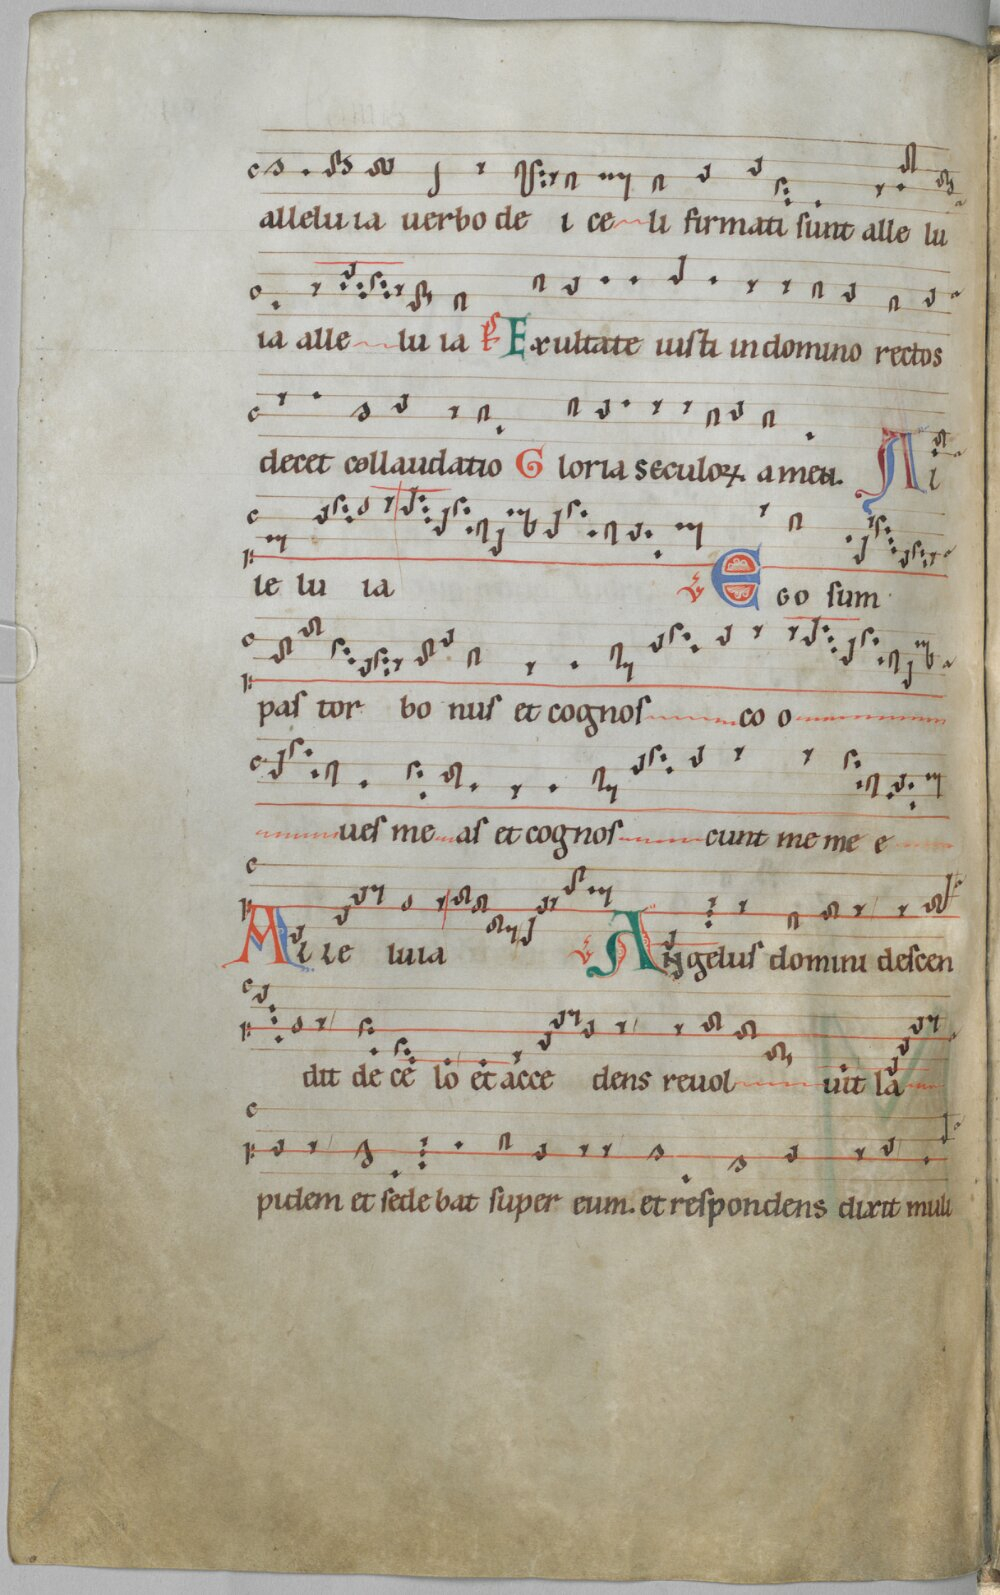 alleluia uerbo de i ce li firmati sunt alle lu
ia alle lu ia Ps Exultate iusti in domino rectos
decet collaudatio Gloria seculoꝝ amen. Al
le lu ia ℣ Ego sum
pas tor bo nus et cognos co o
ues me as et cognos cunt me me e
Al le luia ℣ Angelus domini descen
dit de ce lo et acce dens reuol uit la
pidem et sede bat super eum. et respondens dixit muli